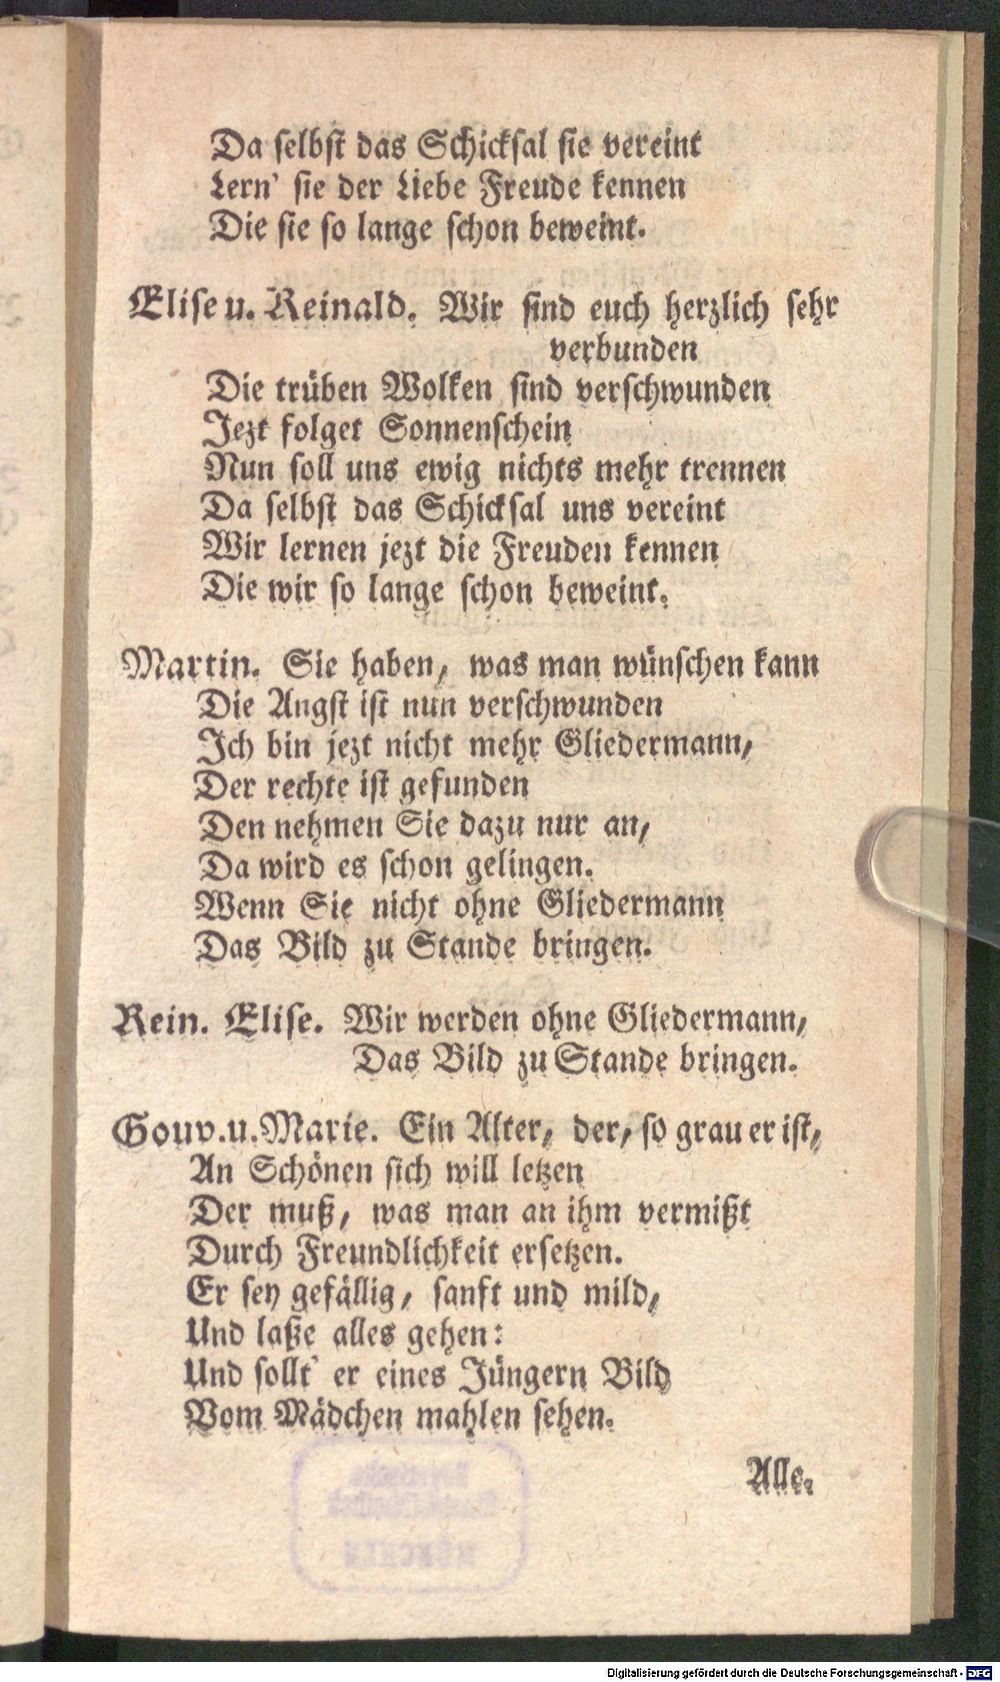 Da selbst das Schicksal sie vereint
Lern' sie der Liebe Freude kennen
Die sie so lange schon beweint.
Elise u. Reinald. Wir sind euch herzlich sehr
verbunden
Die trüben Wolken sind verschwunden
Jezt folget Sonnenschein
Nun soll uns ewig nichts mehr trennen
Da selbst das Schicksal uns vereint
Wir lernen jezt die Freuden kennen
Die wir so lange schon beweint.
Martin. Sie haben, was man wünschen kann
Die Angst ist nun verschwunden
Ich bin jezt nicht mehr Gliedermann,
Der rechte ist gefunden
Den nehmen Sie dazu nur an,
Da wird es schon gelingen.
Wenn Sie nicht ohne Gliedermann
Das Bild zu Stande bringen.
Rein. Elise. Wir werden ohne Gliedermann,
Das Bild zu Stande bringen.
Gouv. u. Marie. Ein Alter, der, so grau er ist,
An Schönen sich will letzen
Der muß, was man an ihm vermißt
Durch Freundlichkeit ersetzen.
Er sey gefällig, sanft und mild,
Und laße alles gehen:
Und sollt' er eines Jüngern Bild
Vom Mädchen mahlen sehen.
Alle.
Digitalisierung gefördert durch die Deutsche Forschungsgemeinschaft - DFG